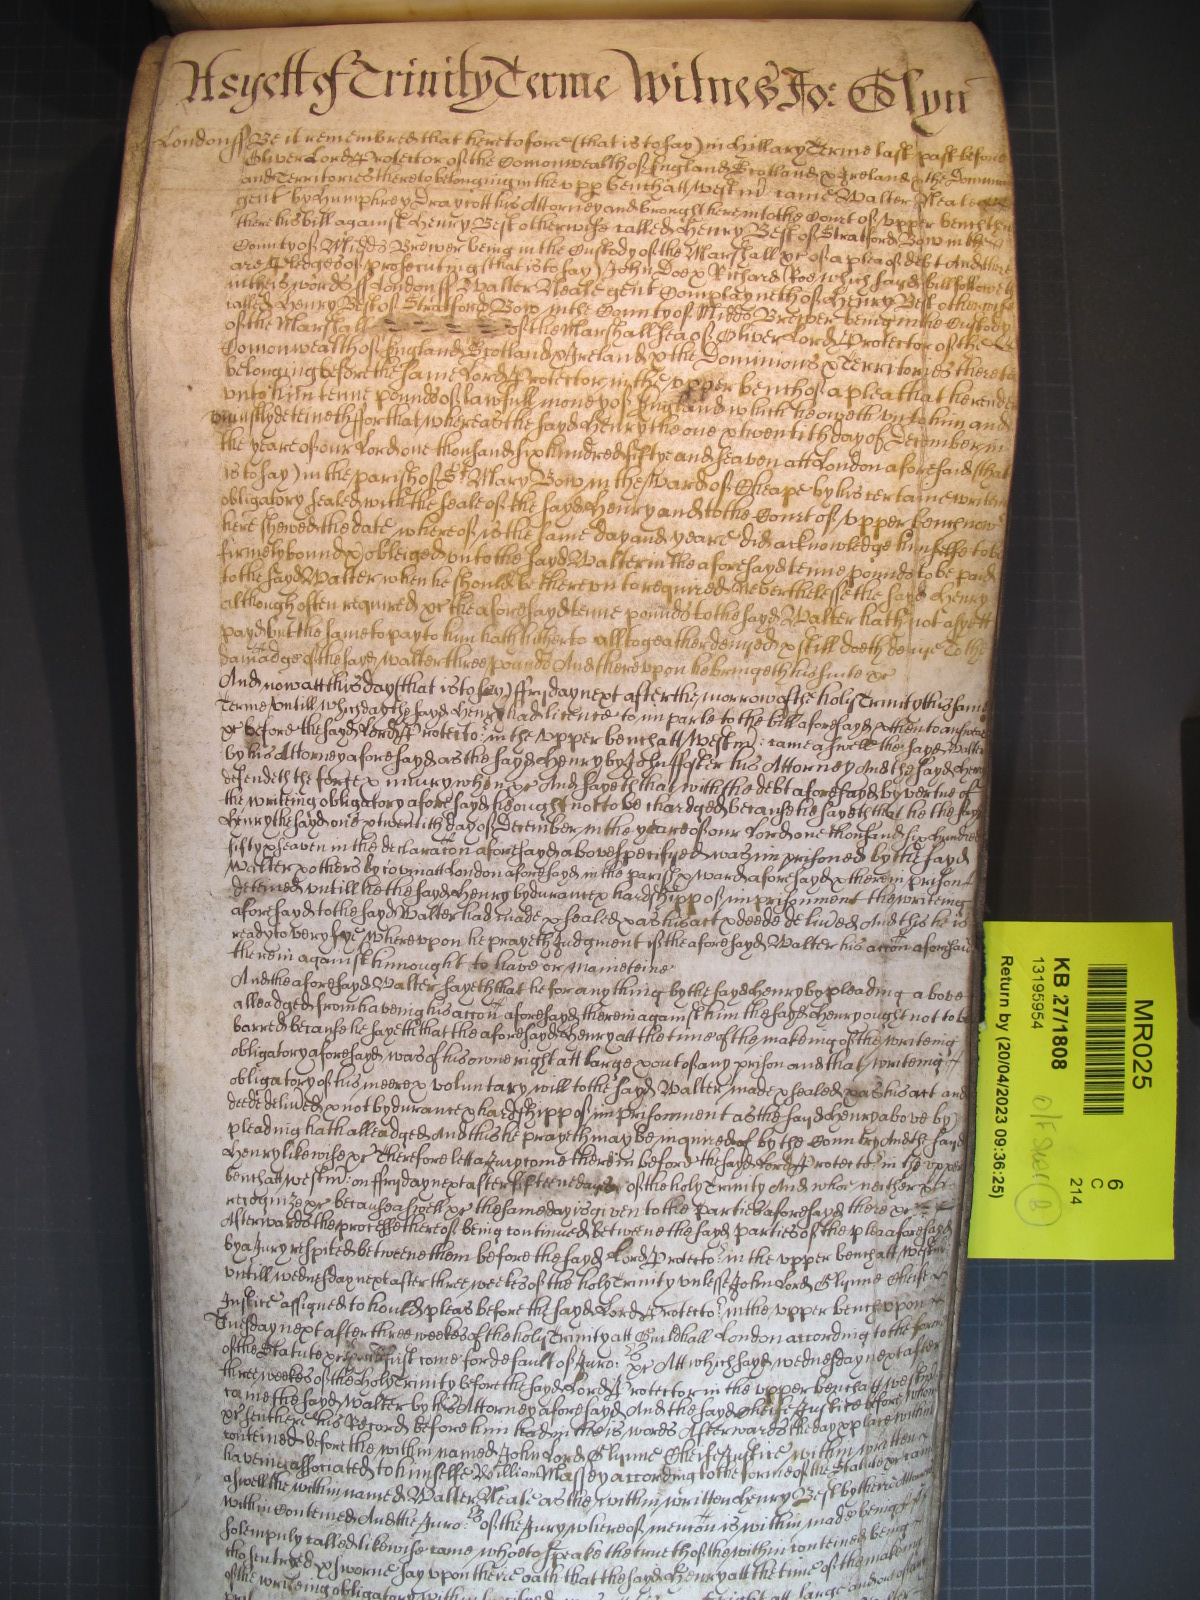 As yett of Trinity Terme Witnes Jo: Glyn
Londonss Be it remembred that heretofore (that is to say) in Hillary Terme last past before
Oliver Lord Protector of the Comonwealth of England Scotland & Ireland & the Dominions
and Territories thereto belonging in the upp bench att Westmr came Walter Neale
gent by Humphrey Draycott his Attorney and brought here into the Court of upper bench then
there his bill against Henry Best otherwise called Henry Best of Stratford Bow in the
County of Midds Brewer being in the Custody of the Marshall &c of a plea of debt And there
are Pledges of prosecuting (that is to say) John Doe & Richard Roe which sayd bill followeth
in theis words ss Londonss Walter Neale gent Complayneth of Henry Best otherwise
called Henry Best of Stratford Bow in the County of Midds Brewer being in the Custody
of the Marshall of the Marshallsea of Oliver Lord Protector of the
Comonwealth of England Scotland & Ireland & the Dominions & Territories thereto
belonging before the same Lord Protector in the upper bench of a plea that he render
unto him tenne pounds of lawfull money of England which he oweth unto him and
uniustly deteineth ffor that whereas the sayd Henry the one & twentith day of December in
the yeare of our Lord one thousand six hundred fiftye and seaven att London aforesaid (that
is to say) in the parish of St Mary Bow in the Ward of Cheape by his certaine writeing
obligatory sealed with the seale of the sayd Henry and to the Court of upper bench now
here shewed the date whereof is the same day and yeare did acknowledge himselfe to be
firmely bound & obleiged unto the sayd Walter in the aforesayd tenne pounds to be paid
to the sayd Walter when he should be thereunto required Neverthelesse the sayd Henry
although often required &c the aforesayd tenne pounds to the sayd Walter hath not as yett
payd but the same to pay to him hath hitherto alltogeather denyed & still doeth denie To the
damadge of the sayd Walter three pounds And thereupon he bringeth his suite &c
And now att this day (that is to say) ffryday next after the morrow of the holy Trinity this same
Terme untill which day the sayd Henry had licence to imparle to the bill aforesayd & then to answere
&c before the sayd Lord Protector in the upper bench att Westmr: came aswell the sayd Walter
by his Attorney aforesayd as the sayd Henry by John ffoster his Attorney And the sayd Henry
defendeth the force & iniury when &c And sayeth that with the debt aforesayd by vertue of
the writeing obligatory aforesayd he ought not to be chardged because he sayeth that he the sayd
Henry the sayd one & twentith day of December in the yeare of our Lord one thousand six hundred
fifty & seaven in the declaracon aforesayd above specifyed was imprisoned by the sayd
Walter & others by covin att London aforesayd in the parish & ward aforesayd & there in prison
deteined untill he the sayd Henry by durance & hardshipp of imprisonment the writeing
aforesayd to the sayd Walter had made & sealed & as his act & deede delived And this he is
ready to veryfye Whereupon he prayeth Judgment if the aforesayd Walter his accon aforesaid
therein against him ought to have or mainteine
And the aforesayd Walter sayeth that he for any thing by the sayd Henry by pleading above
alleadged from haveing his accon aforesayd therein against him the sayd Henry ought not to be
barred because he sayeth that the aforesayd Henry att the time of the makeing of the writeing
obligatory aforesayd was of his owne right att large & out of any prison and that writeing
obligatory of his meere & voluntary will to the sayd Walter made & sealed & as his act and
deede delived & not by durance & hardshipp of imprisonment as the sayd Henry above by
pleading hath alleadged And this he prayeth may be inquired of by the Country And the sayd
Henry likewise &c Therefore lett a Jury come therein before the sayd Lord Protector in the upper
bench att Westmr: on ffryday next after fifteene dayes of the holy Trinity And whoe neither &c
recognize &c because aswell &c the same day is given to the Parties aforesayd there &c
Afterwards the processe thereof being continued betweene the sayd Parties of the plea aforesayd
by a Jury respited betweene them before the sayd Lord Protector in the upper bench att Westmr
untill wednesday next after three weekes of the holy Trinity unlesse John Lord Glynne Cheife
Justice assigned to hould pleas before the sayd Lord Protector in the upper bench upon
Tuesday next after three weekes of the holy Trinity att Guildhall London according to the forme
of the Statute &c first come for default of Juro: &c Att which sayd wednesday next after
three weekes of the holy Trinity before the sayd Lord Protector in the upper bench att Westmr
came the sayd Walter by his Attorney aforesayd And the sayd Cheife Justice before whom
&c sent here his Record before him had in theis words Afterwards the day & place within
conteined before the within named John Lord Glynne Cheife Justice within written
haveing associated to himselfe William Massey according to the forme of the Statute &c came
aswell the within named Walter Neale as the within written Henry Best by their Attorneys
within Conteined And the Juro: of the Jury whereof mencon is within made being
solempnly called likewise came whoe to speake the trueth of the within conteined being
chosen tryed & sworne say upon their oath that the sayd Henry att the time of the makeing
of the writeing obligatory within att large and out of any
MR025
6
C
214
KB 27/1808
13195954
Return by (20/04/2023 09:36:25)